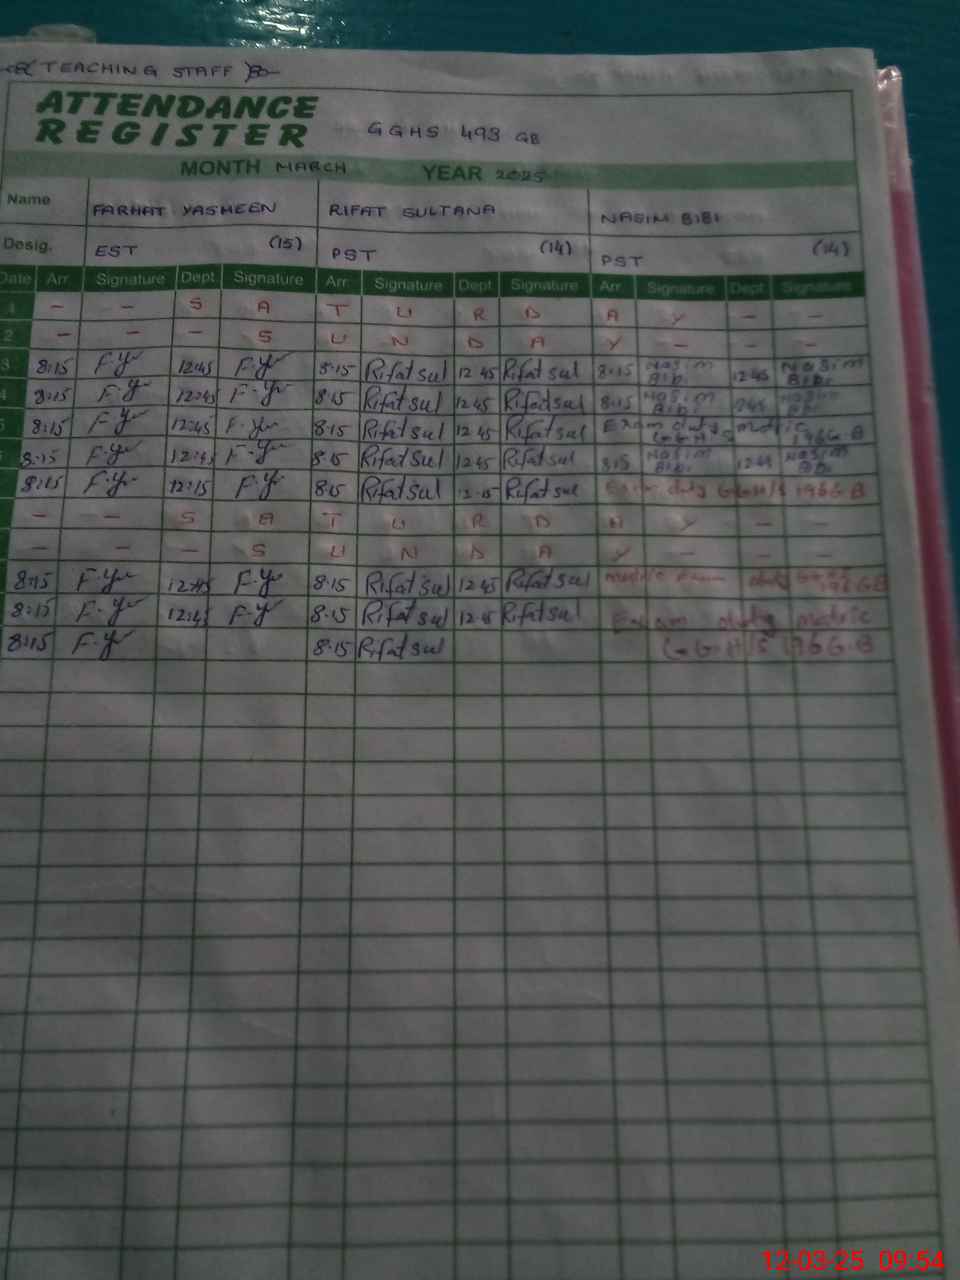 (TEACHING STAFF)
ATTENDANCE
REGISTER GGHS 493 GB
MONTH MARCH YEAR 2025
Name FARHAT YASMEEN RIFAT SULTANA NASIM BIBI
Desig. EST (15) PST (14) PST (14)
Date Arr. Signature Dept Signature Arr. Signature Dept Signature Arr. Signature Dept Signature
1 - - S A T U R D A Y - -
2 - - - S U N D A Y - - -
3 8:15 12:45 8:15 Rifat sul 12 45 Rifat sul 8:15 Nasim Bibi 12 45 Nasim Bibi
4 8:15 12:45 8:15 Rifat sul 12 45 Rifat sul 8:15 Nasim Bibi
5 8:15 12:45 8:15 Rifat sul 12 45 Rifat sul Exam duty matric G.G.H/S 196 G.B
8:15 12:45 8:15 Rifat sul 12 45 Rifat sul 8:15 Nasim Bibi 12 45 Nasim Bibi
8:15 12:15 8:15 Rifat sul 12 15 Rifat sul Exam duty G.G.H/S 196 G.B
- - S A T U R D A Y - -
- - - S U N D A Y - - -
8:15 12:45 8:15 Rifat sul 12 45 Rifat sul matric Exam duty 196 GB
8:15 12:45 8:15 Rifat sul 12 45 Rifat sul Exam duty matric
8:15 8:15 Rifat sul G.G.H/S 196 G.B
12-03-25 09:54